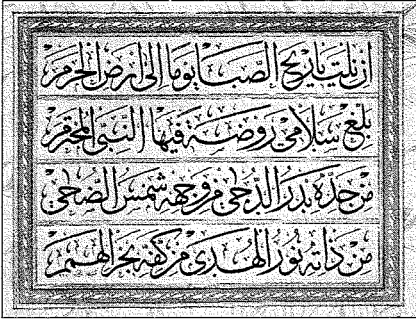 ان نلت يا ريح الصبا يوما الى ارض الحرم
بلغ سلامي روضة فيها النبي المحترم
من خده بدر الدجى من وجهه شمس الضحى
من ذاته نور الهدى من كفه بحر الهمم